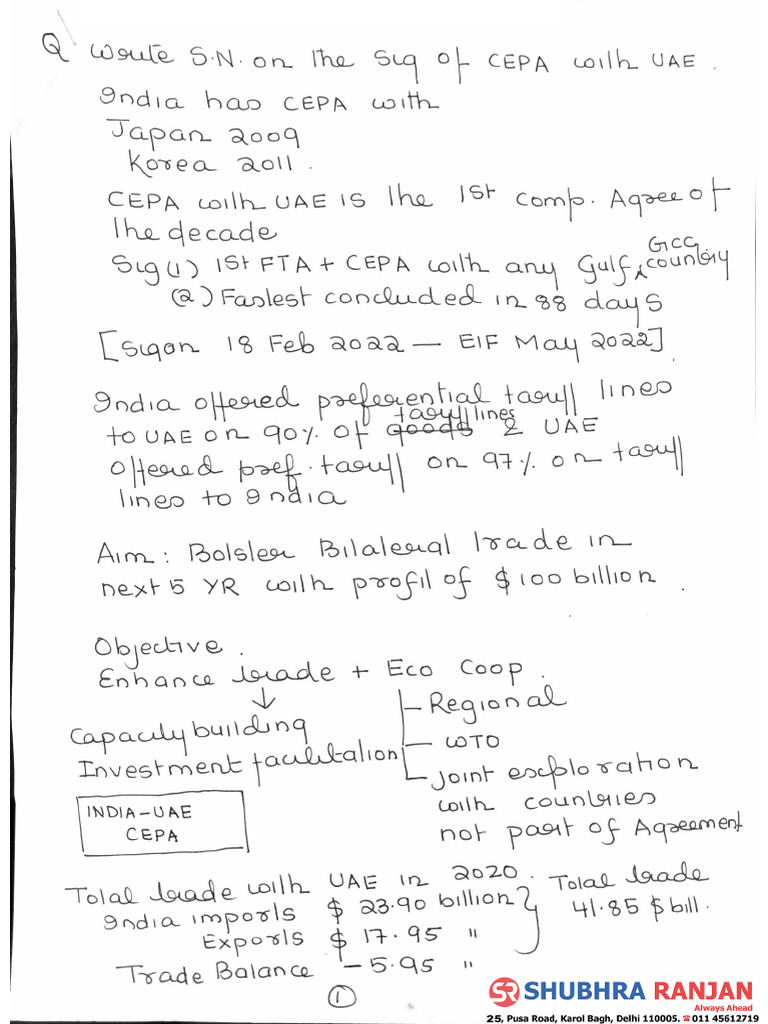 Q Write S.N. on the Sig of CEPA with UAE.
India has CEPA with
Japan 2009
Korea 2011.
CEPA with UAE is the 1st comp. Agree of
the decade
Sig (1) 1st FTA + CEPA with any Gulf, GCC country
(2) Fastest concluded in 88 days
[Sign 18 Feb 2022 — EIF May 2022]
India offered preferential tariff lines
to UAE on 90% of goods tariff lines & UAE
offered pref. tariff on 97% on tariff
lines to India
Aim: Bolster Bilateral trade in
next 5 YR with profit of $100 billion.
Objective.
Enhance trade + Eco Coop.
Capacity building
Investment facilitation
Regional
WTO
Joint exploration
with countries
not part of Agreement
INDIA-UAE
CEPA
Total trade with UAE in 2020.
India imports $ 23.90 billion
Exports $ 17.95 "
Total trade
41.85 $ bill.
Trade Balance -5.95 "
1
SR SHUBHRA RANJAN
Always Ahead
25, Pusa Road, Karol Bagh, Delhi 110005. ☎011 45612719